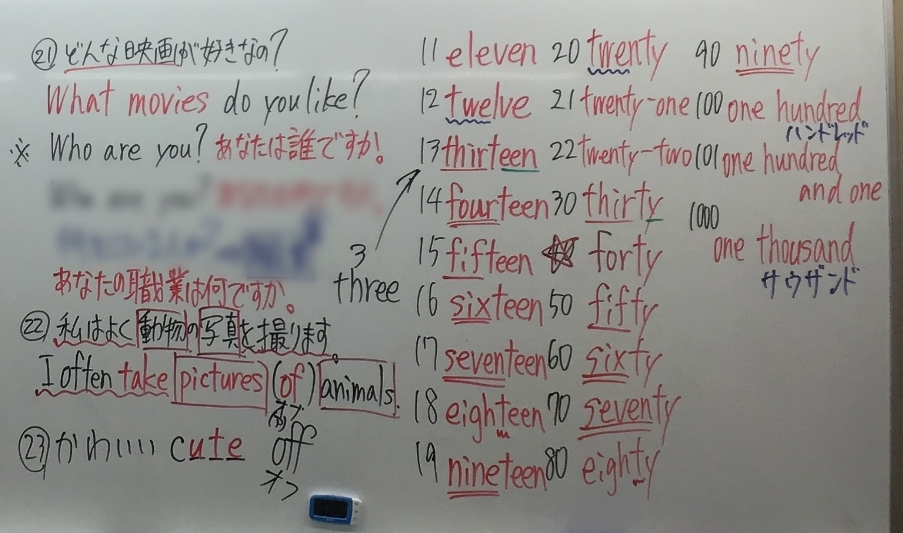 ㉑ どんな映画が好きなの?
What movies do you like?
※ Who are you? あなたは誰ですか。
あなたの職業は何ですか。
㉒ 私はよく動物の写真を撮ります。
I often take pictures (of) animals.
オブ
㉓ かわいい cute off
オフ
3
three
11 eleven
12 twelve
13 thirteen
14 fourteen
15 fifteen
16 sixteen
17 seventeen
18 eighteen
19 nineteen
20 twenty
21 twenty-one
22 twenty-two
30 thirty
forty
50 fifty
60 sixty
70 seventy
80 eighty
90 ninety
100 one hundred
ハンドレッド
101 one hundred
and one
1000
one thousand
サウザンド